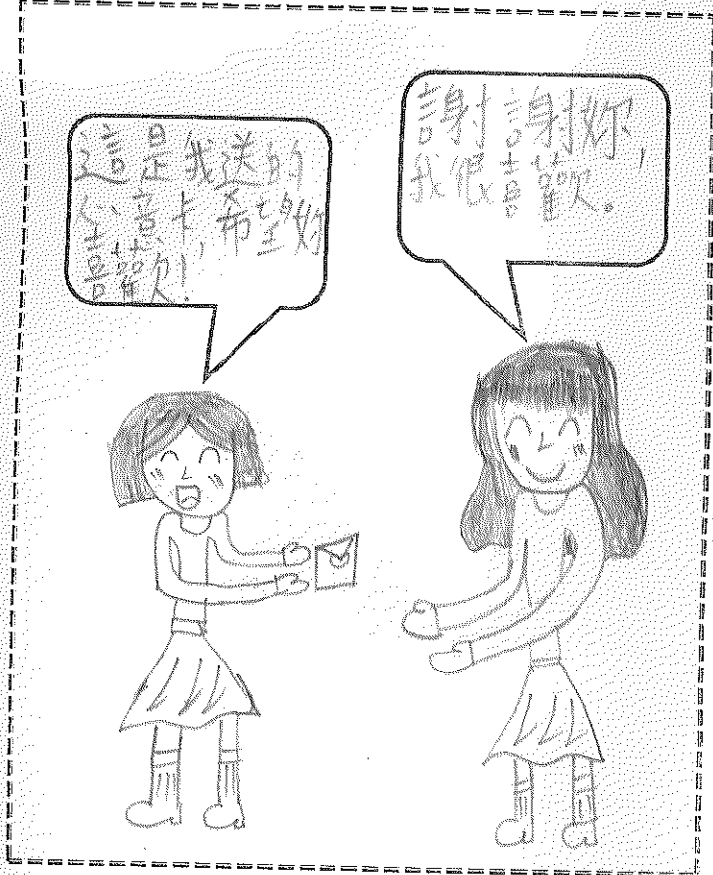 這是我送的
心意卡,希望妳
喜歡!
謝謝妳,
我很喜歡。